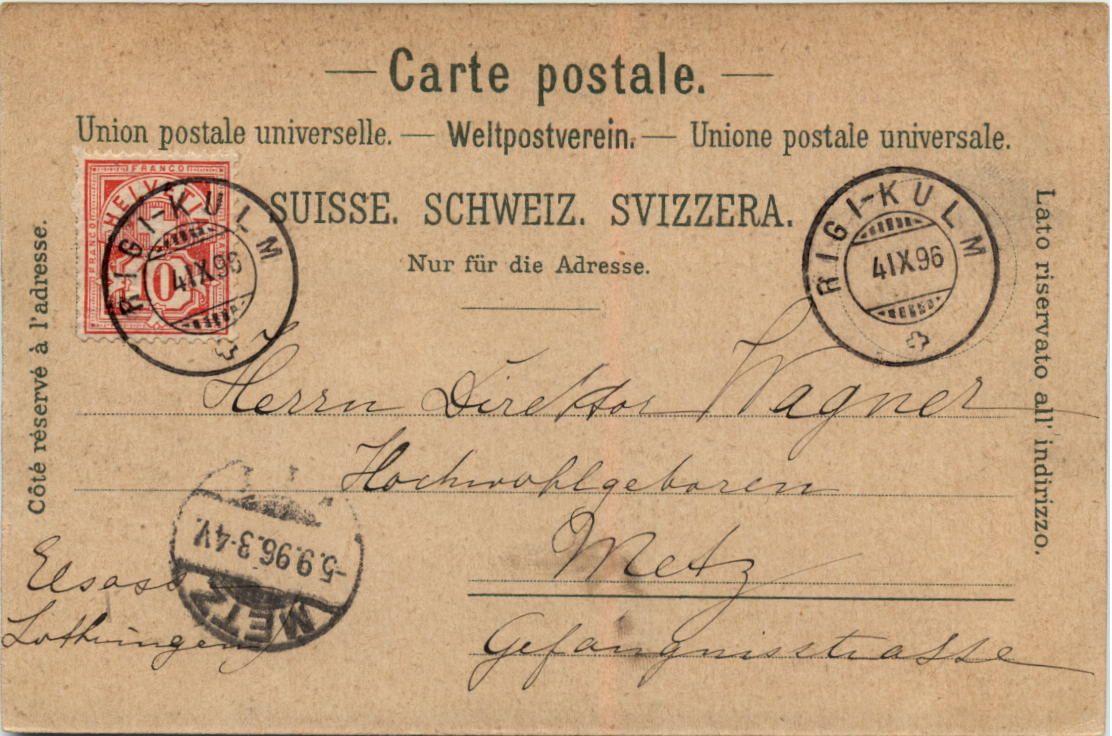 — Carte postale. —
Union postale universelle. — Weltpostverein. — Unione postale universale.
SUISSE. SCHWEIZ. SVIZZERA.
Nur für die Adresse.
Côté réservé à l'adresse.
Lato riservato all' indirizzo.
FRANCO
HELVETIA
10
RIGI-KULM
4IX96
RIGI-KULM
4IX96
Herrn Direktor Wagner
Hochwohlgeboren
Metz
Gefängnisstrasse
Elsass
Lothringen
METZ
-5.9.96.3-4V.